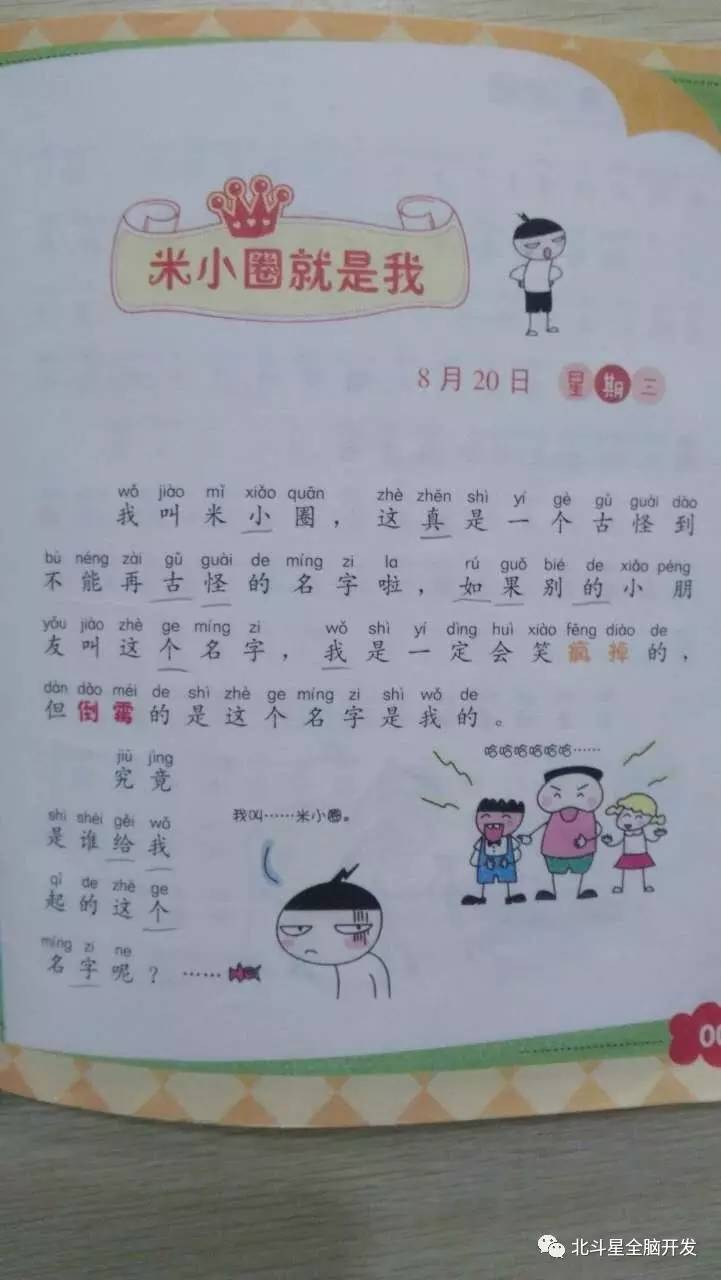 米小圈就是我
8月20日 星期三
wǒ jiào mǐ xiǎo quān zhè zhēn shì yí gè gǔ guài dào
我叫米小圈，这真是一个古怪到
bù néng zài gǔ guài de míng zi la rú guǒ bié de xiǎo péng
不能再古怪的名字啦，如果别的小朋
yǒu jiào zhè ge míng zi wǒ shì yí dìng huì xiào fēng diào de
友叫这个名字，我是一定会笑疯掉的，
dàn dǎo méi de shì zhè ge míng zi shì wǒ de
但倒霉的是这个名字是我的。
jiū jìng
究竟
shì shéi gěi wǒ
是谁给我
qǐ de zhè ge
起的这个
míng zi ne
名字呢？……
我叫……米小圈。
哈哈哈哈哈哈……
北斗星全脑开发